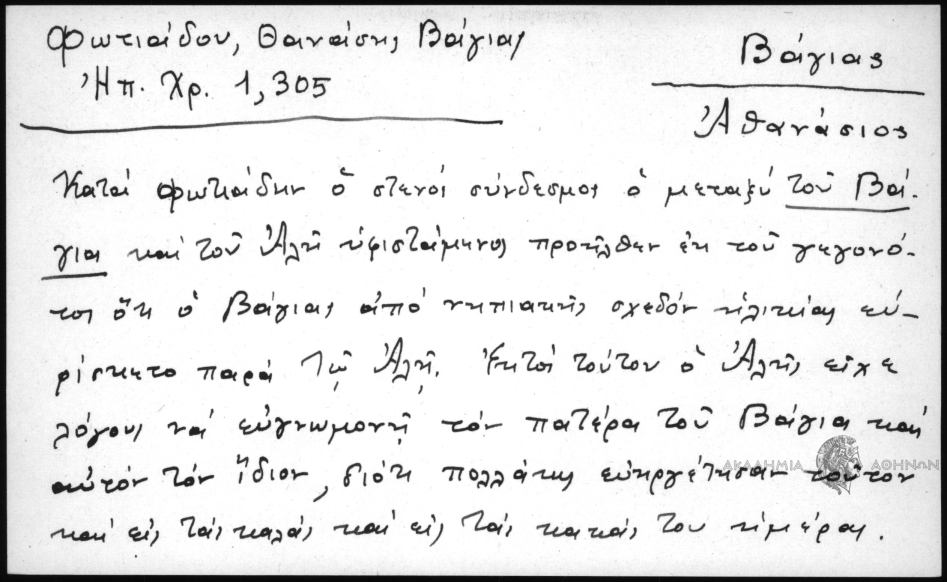 Φωτιάδου, Θανάσης Βάγιας
Ἠπ. Χρ. 1, 305
Βάγιας
Ἀθανάσιος
Κατά Φωτιάδην ὁ στενός σύνδεσμος ὁ μεταξύ τοῦ Βά-
για καί τοῦ Ἀλῆ ὑφιστάμενος προῆλθεν ἐκ τοῦ γεγονό-
τος ὅτι ὁ Βάγιας ἀπό νηπιακῆς σχεδόν ἡλικίας εὑ-
ρίσκετο παρά τῷ Ἀλῇ. Ἐκτός τούτου ὁ Ἀλῆς εἶχε
λόγους νά εὐγνωμονῇ τόν πατέρα τοῦ Βάγια καί
αὐτόν τόν ἴδιον, διότι πολλάκις εὐηργέτησαν τοῦτον
καί εἰς τάς καλάς καί εἰς τάς κακάς του ἡμέρας.
ΑΚΑΔΗΜΙΑ ΑΘΗΝΩΝ